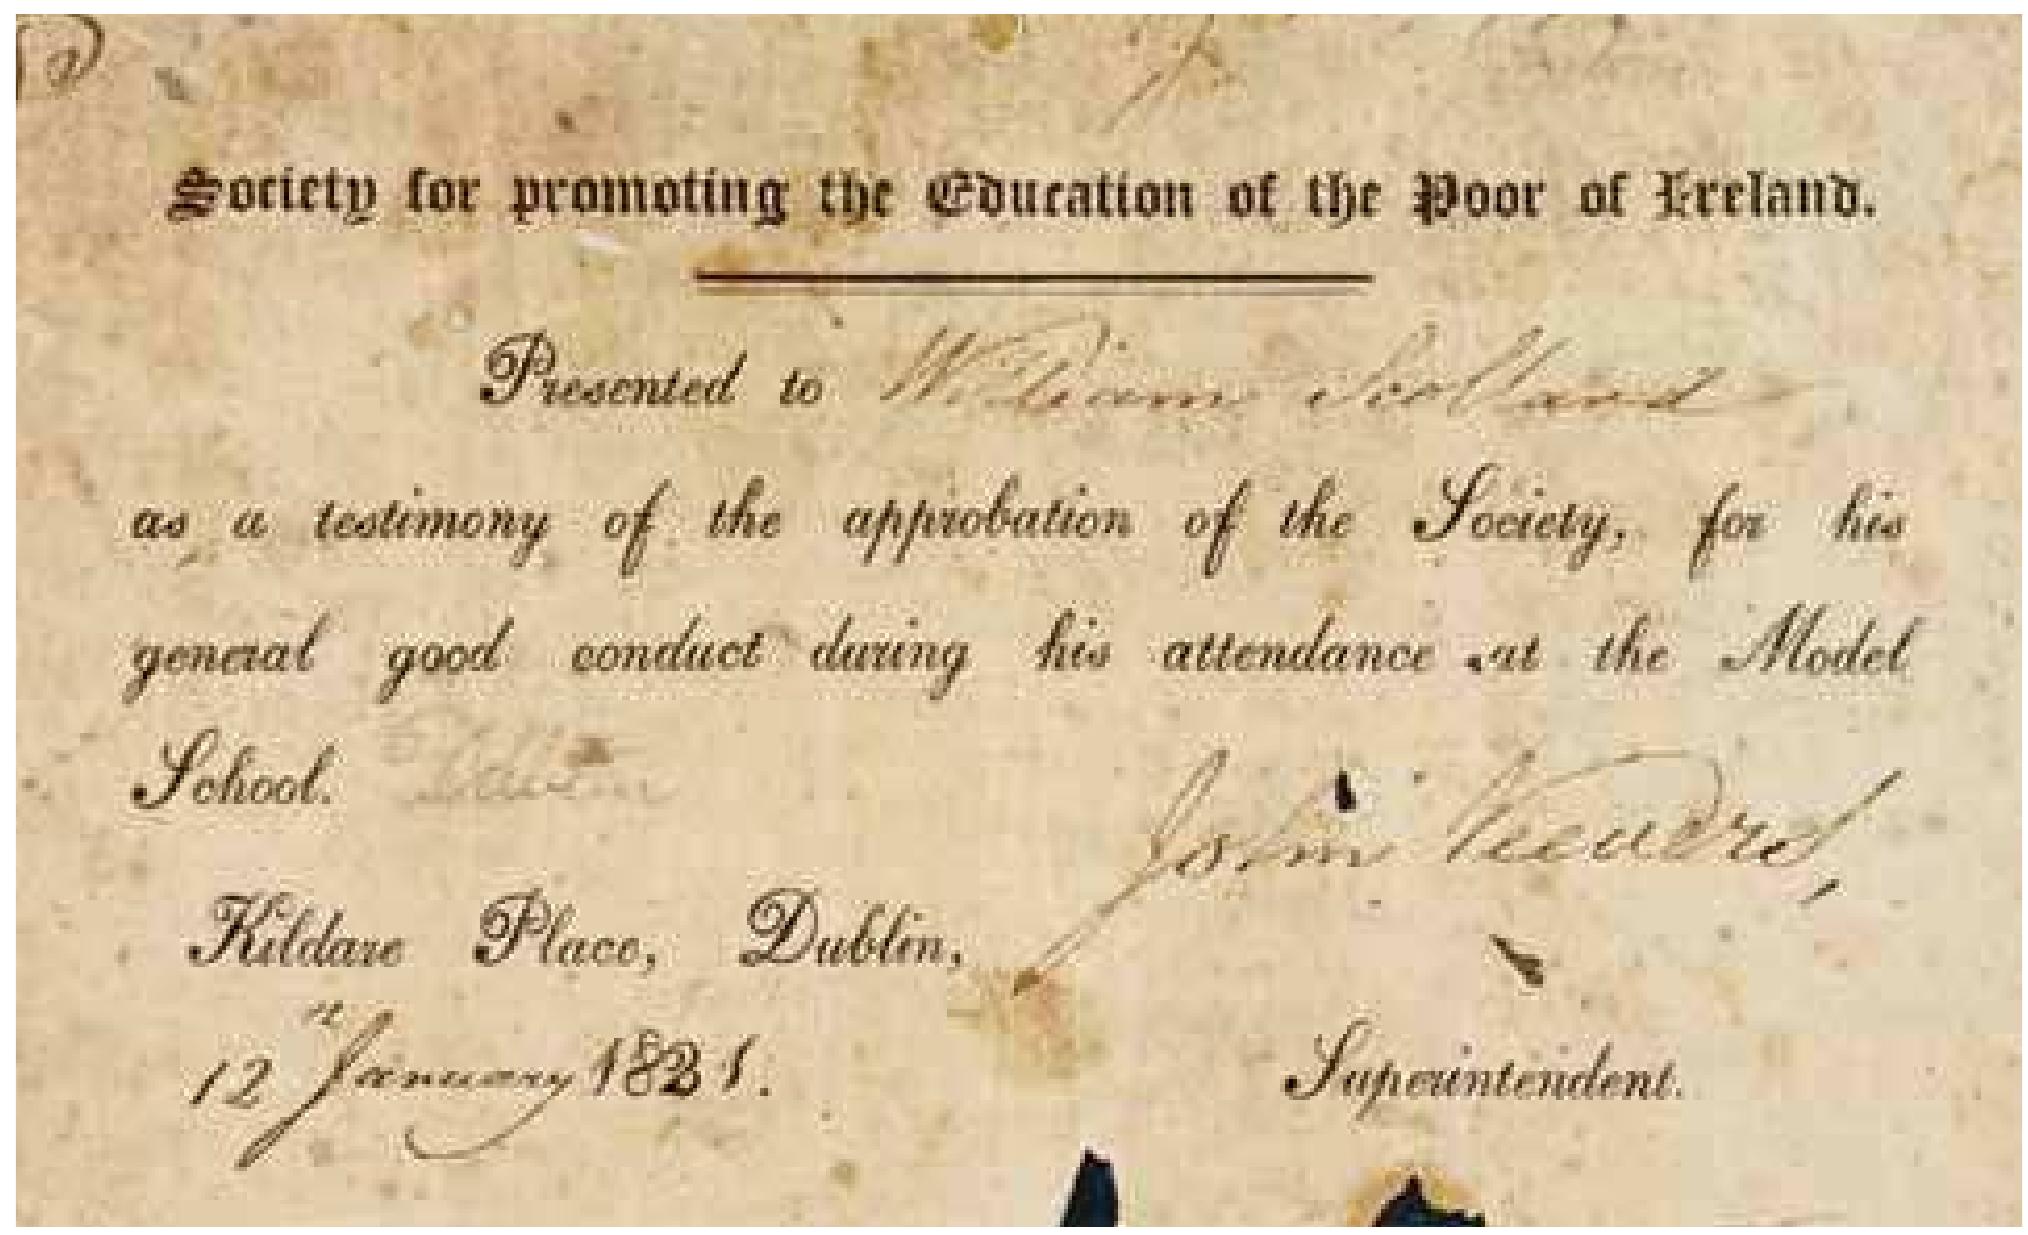 Society for promoting the Education of the Poor of Ireland.
Presented to William Scolland
as a testimony of the approbation of the Society, for his
general good conduct during his attendance at the Model
School.
John
Kildare Place, Dublin,
12th January 1821.
Superintendent.